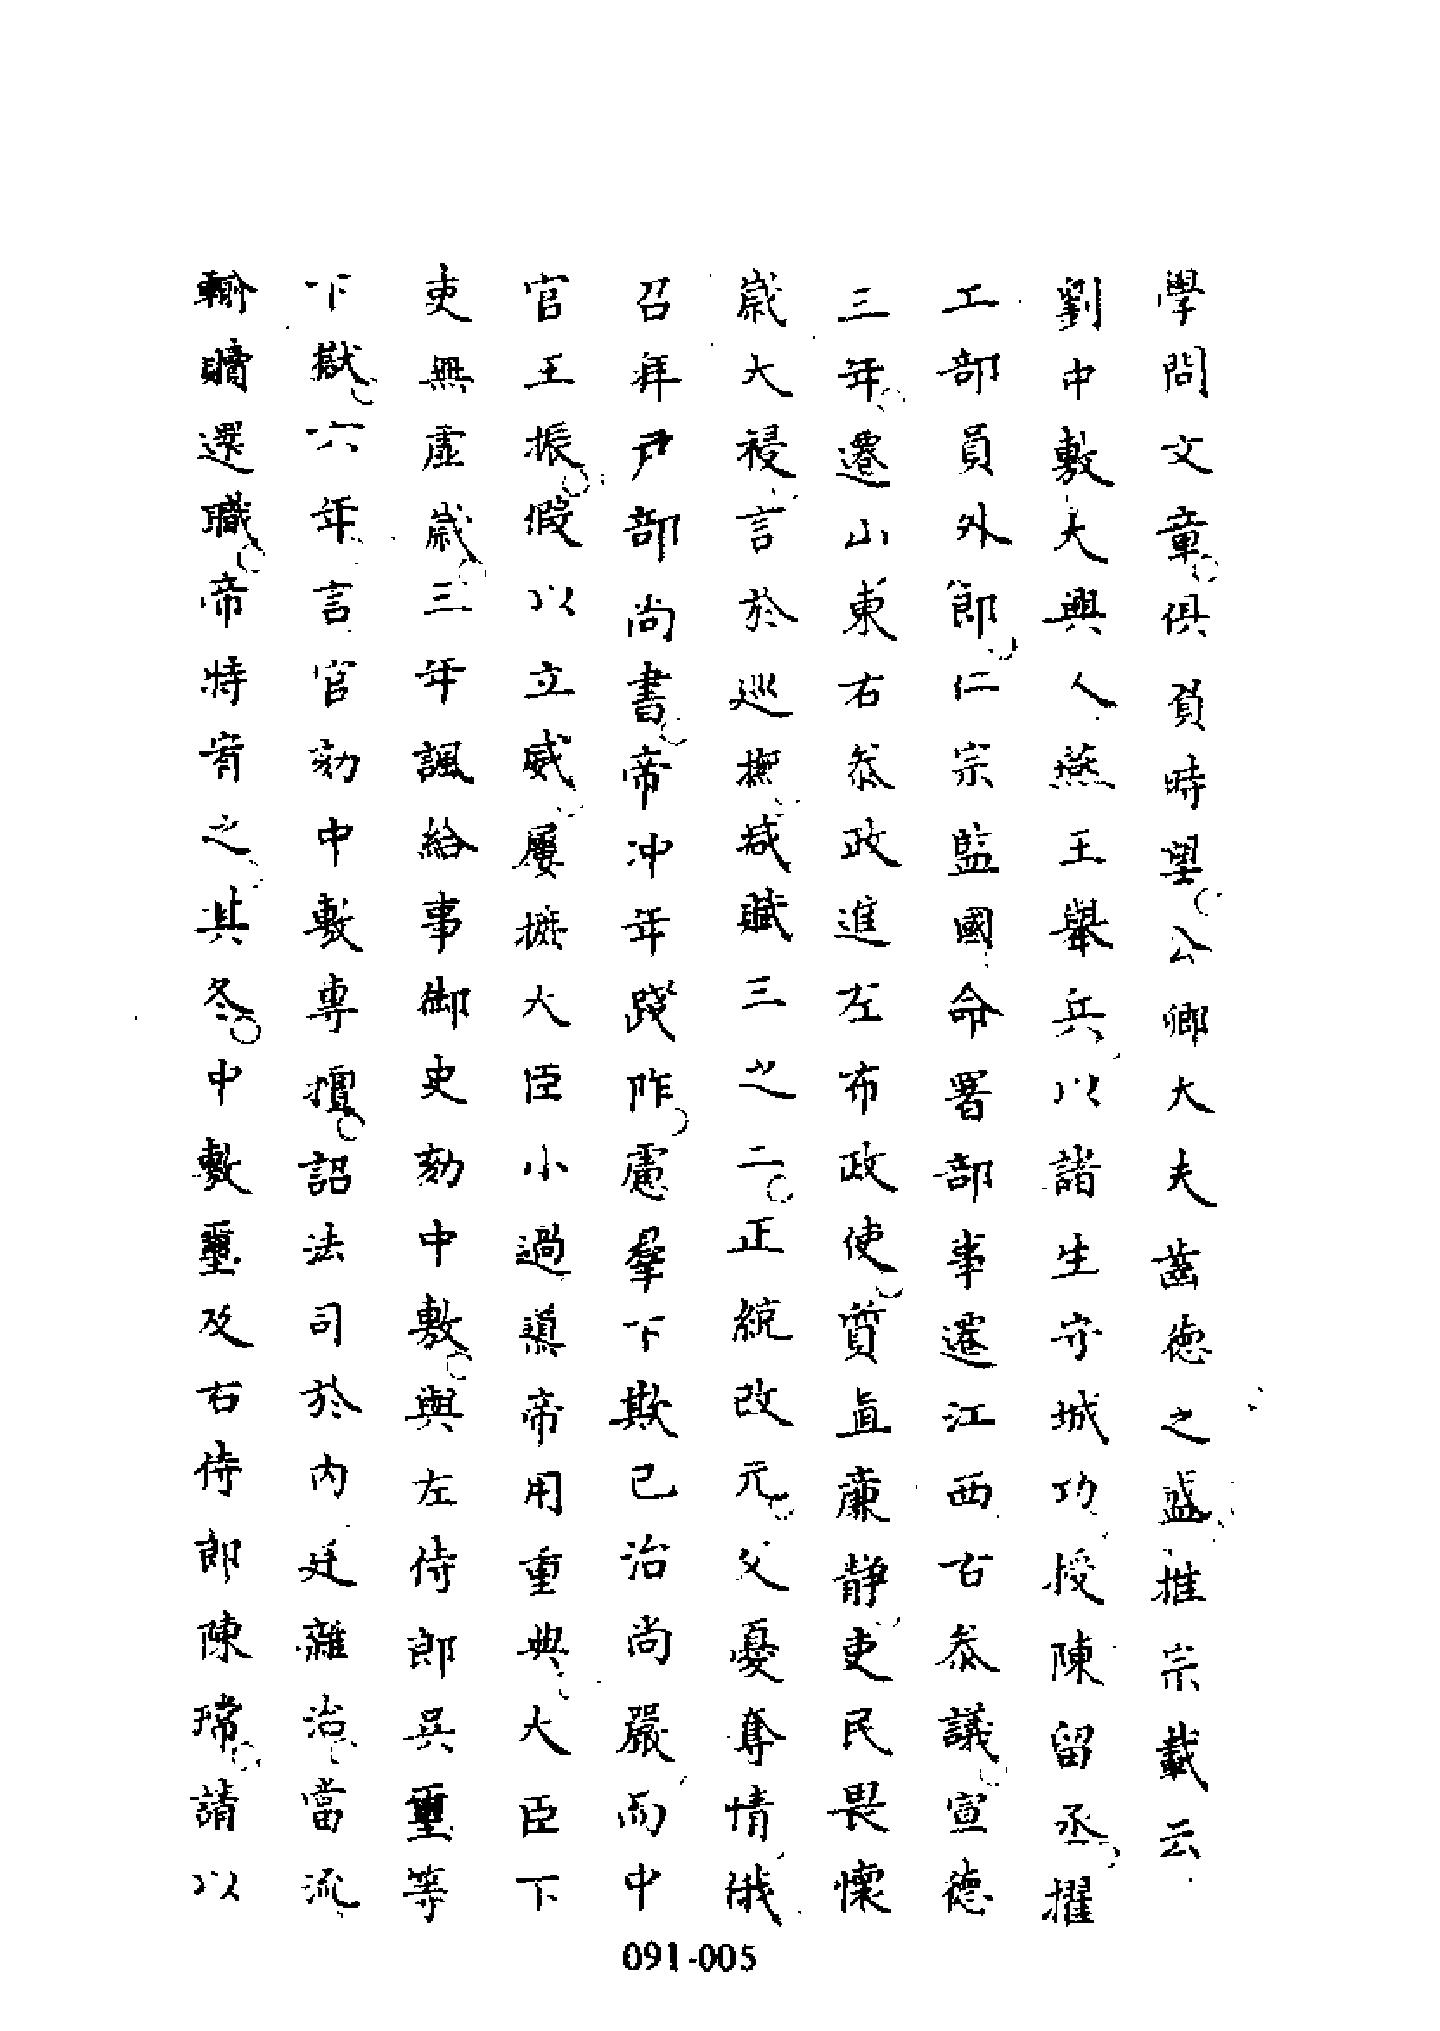 學問文章俱負時望公卿大夫齒德之盛推宗載云
劉中敷大興人燕王舉兵以諸生守城功授陳留丞擢
工部員外郎仁宗監國命署部事遷江西右叅議宣德
三年遷山東右叅政進左布政使質直廉静吏民畏懷
歲大祲言於巡撫减賦三之二正統改元父憂奪情俄
召拜戶部尚書帝冲年踐阼慮羣下欺己治尚嚴而中
官王振假以立威屢摭大臣小過導帝用重典大臣下
吏無虛歲三年諷給事御史劾中敷與左侍郎吳璽等
下獄六年言官劾中敷專擅詔法司於內廷雜治當流
輸贖還職帝特宥之其冬中敷璽及右侍郎陳瑺請以
091-005